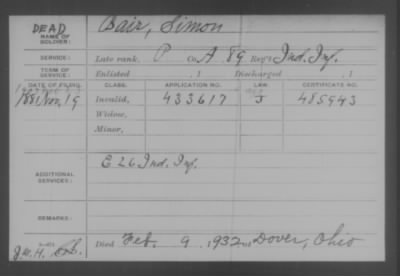 DEAD
NAME OF SOLDIER: Bair, Simon
SERVICE: Late rank, P Co. A, 89 Reg't Ind. Inf.
TERM OF SERVICE: Enlisted , 1 Discharged , 1
DATE OF FILING. CLASS. APPLICATION NO. LAW. CERTIFICATE NO.
1881 Nov. 19 Invalid, 433617 J 485943
Widow,
Minor,
ADDITIONAL SERVICES: E 26 Ind. Inf.
REMARKS:
Died Feb. 9, 1932 at Dover, Ohio
J.W.H.